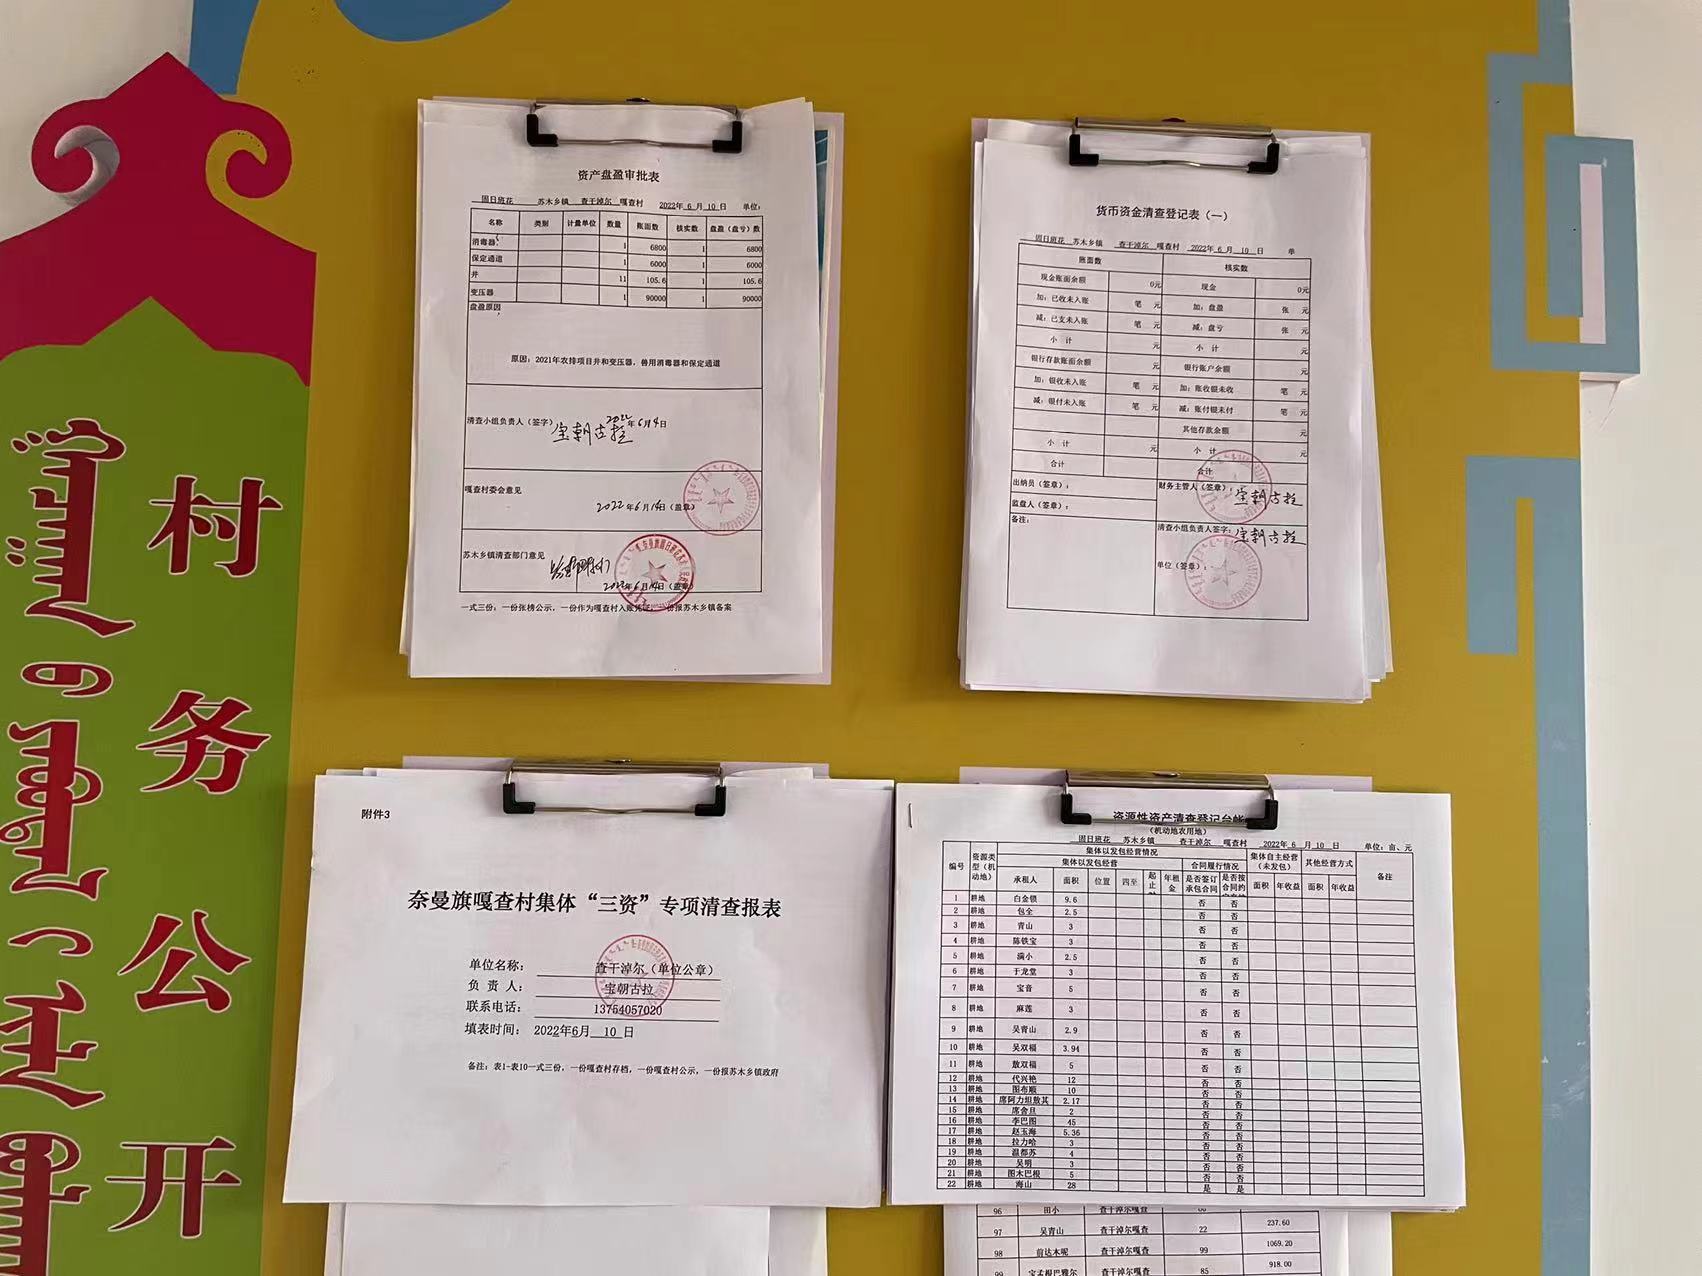 村务公开
资产盘盈审批表
固日班花 苏木乡镇 查干淖尔 嘎查村 2022年 6 月 10 日 单位：
名称 类别 计量单位 数量 账面数 核实数 盘盈（盘亏）数
消毒器 1 6800 1 6800
保定通道 1 6000 1 6000
井 11 105.6 1 105.6
变压器 1 90000 1 90000
盘盈原因
原因：2021年农排项目井和变压器，兽用消毒器和保定通道
清查小组负责人（签字） 宝朝古拉 2022年6月14日
嘎查村委会意见
2022年6月14日（盖章）
苏木乡镇清查部门意见
2022年6月14日（盖章）
一式三份：一份张榜公示，一份作为嘎查村入账凭证，一份报苏木乡镇备案
货币资金清查登记表（一）
固日班花 苏木乡镇 查干淖尔 嘎查村 2022年 6 月 10 日 单
账面数 核实数
现金账面余额 0元 现金 0元
加：已收未入账 笔 元 加：盘盈 张 元
减：已支未入账 笔 元 减：盘亏 张 元
小 计 元 小 计 元
银行存款账面余额 元 银行账户余额 元
加：银收未入账 笔 元 加：账收银未收 笔 元
减：银付未入账 笔 元 减：账付银未付 笔 元
其他存款余额 元
小 计 元 小 计 元
合计 合计
出纳员（签章）： 财务主管人（签章）： 宝朝古拉
监盘人（签章）：
备注： 清查小组负责人签字： 宝朝古拉
单位（签章）：
附件3
奈曼旗嘎查村集体“三资”专项清查报表
单位名称： 查干淖尔（单位公章）
负 责 人： 宝朝古拉
联系电话： 13754057020
填表时间： 2022年6月 10 日
备注：表1-表10一式三份，一份嘎查村存档，一份嘎查村公示，一份报苏木乡镇政府
资源性资产清查登记台帐
（机动地农用地）
固日班花 苏木乡镇 查干淖尔 嘎查村 2022年 6 月 10 日 单位：亩、元
编号 资源类型（机动地） 集体以发包经营情况 集体自主经营（未发包） 其他经营方式 备注
集体以发包经营 合同履行情况
承租人 面积 位置 四至 起止 年租金 是否签订承包合同 是否按合同约 面积 年收益 面积 年收益
1 耕地 白金锁 9.6 否 否
2 耕地 包全 2.5 否 否
3 耕地 青山 3 否 否
4 耕地 陈铁宝 3 否 否
5 耕地 满小 2.5 否 否
6 耕地 于龙堂 3 否 否
7 耕地 宝音 5 否 否
8 耕地 麻莲 3 否 否
9 耕地 吴青山 2.9 否 否
10 耕地 吴双福 3.94 否 否
11 耕地 敖双福 5 否 否
12 耕地 代兴艳 12 否 否
13 耕地 图布顺 10 否 否
14 耕地 席阿力坦敖其 2.17 否 否
15 耕地 席舍旦 2 否 否
16 耕地 李巴图 45 否 否
17 耕地 赵玉海 5.36 否 否
18 耕地 拉力哈 3 否 否
19 耕地 温都苏 4 否 否
20 耕地 吴明 3 否 否
21 耕地 图木巴根 5 否 否
22 耕地 海山 28 是 是
96 田小 查干淖尔嘎查
97 吴青山 查干淖尔嘎查 22 237.60
98 前达木呢 查干淖尔嘎查 99 1069.20
99 宝孟根巴雅尔 查干淖尔嘎查 85 918.00